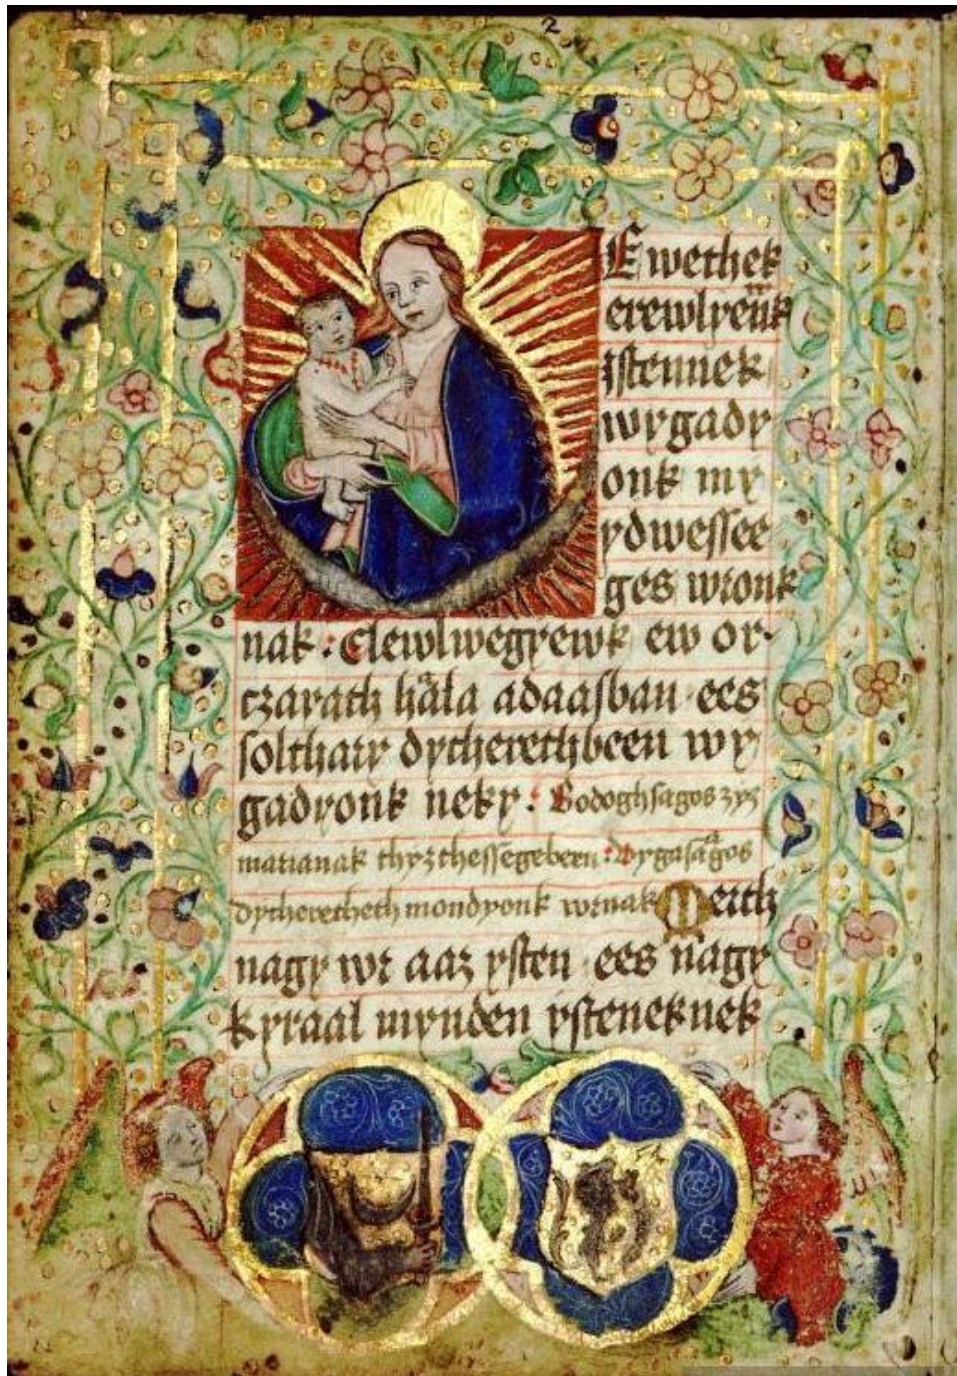 2
Ewethek
erewlyenk
Istennek
wygady
onk my
ydwessee
ges wronk
nak : Elewlwegyewk ew or⸗
czarath hala adaasban · ees
solthary dycherethbeen wy
gadyonk neky : Bodoghsagos zyz
marianak thyzthessegebeen : Wygasagos
dycheretheth mondyonk wrnak Merth
nagy wr aaz ysten · ees nagy
kyraal mynden ysteneknek